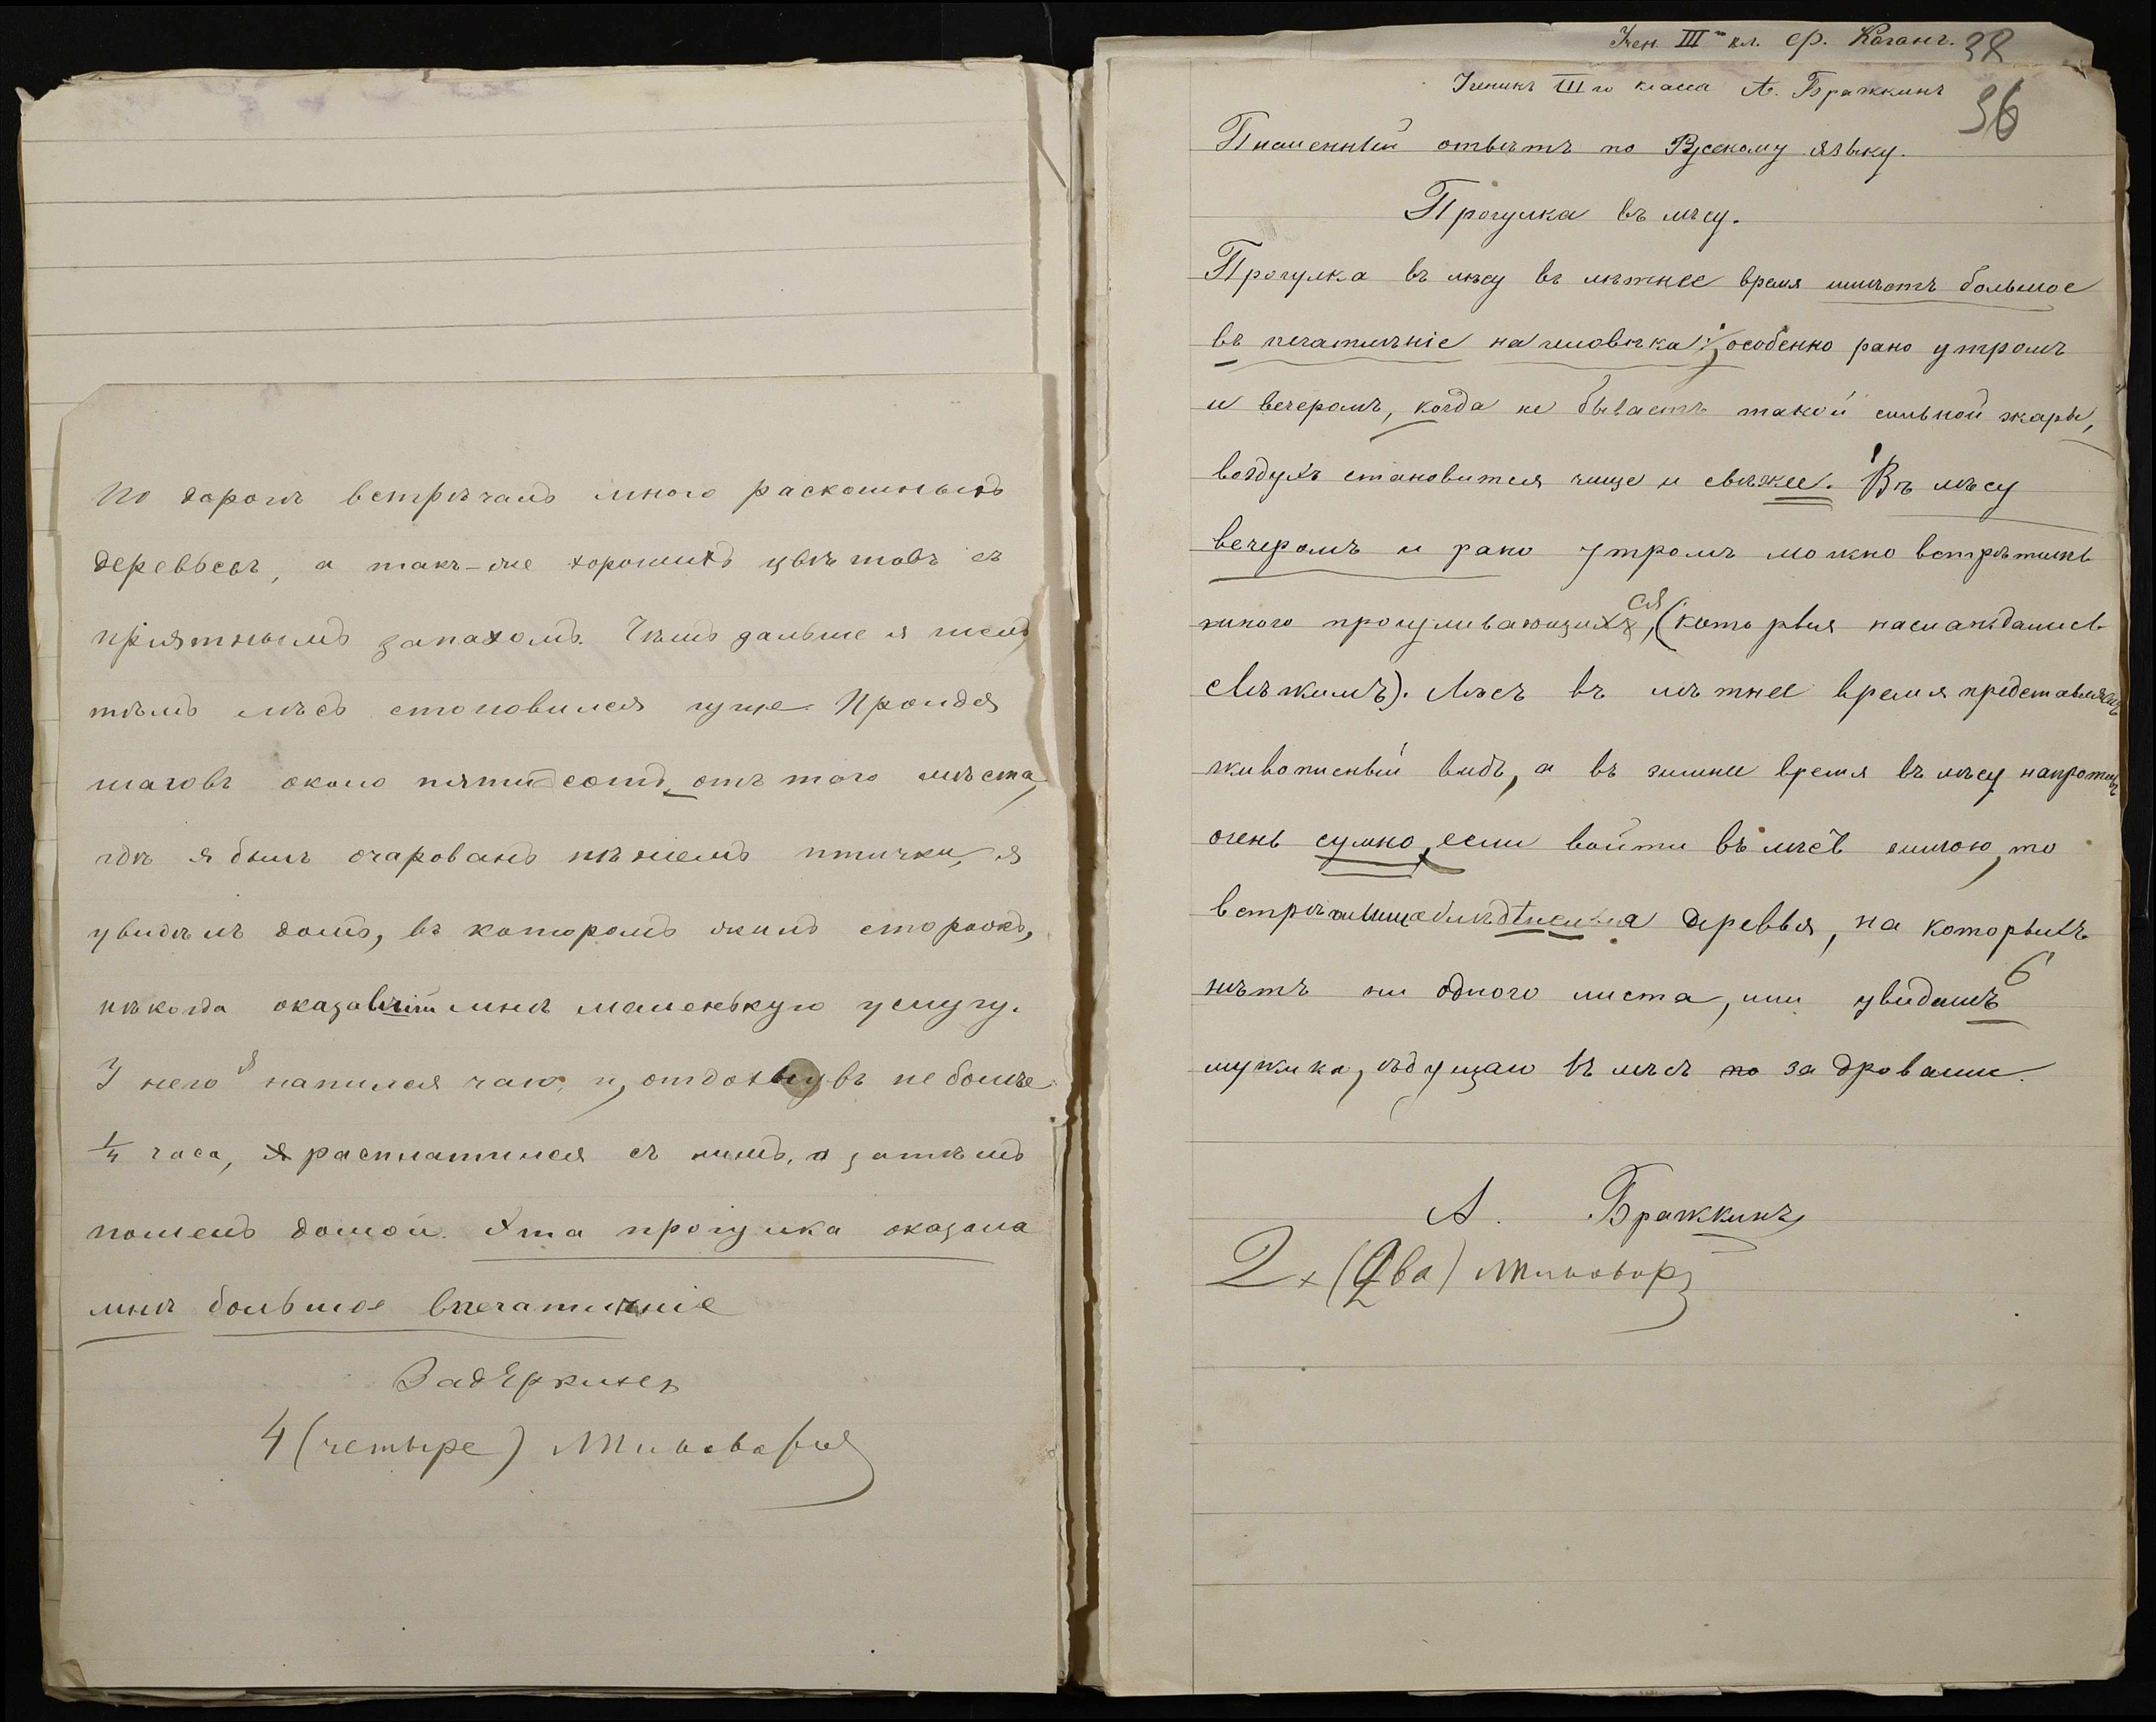 по дорогѣ встрѣчалъ много раскошныхъ
деревьевъ, а такъ-же хорошихъ цвѣтовъ съ
пріятнымъ запахомъ. Чѣмъ дальше я шелъ,
тѣмъ лѣсъ становился гуще. Пройдя
шаговъ около пятисотъ отъ того мѣста,
гдѣ я былъ очарованъ пѣніемъ птички, я
увидѣлъ домъ, въ которомъ жилъ сторожъ,
нѣкогда оказавшій мнѣ маленькую услугу.
У него я напился чаю и, отдохнувъ не болѣе
1/4 часа, я расплатился съ нимъ, а затѣмъ
пошелъ домой. Эта прогулка оказала
мнѣ большое впечатлѣніе
4 (четыре)
Учен. III кл. ср. Коганъ. 38
Ученикъ III го класса А. Бражкинъ
36
Писменный отвѣтъ по Русскому языку.
Прогулка въ лѣсу.
Прогулка въ лѣсу въ лѣтнее время имѣетъ большое
въ печатлѣніе на человѣка; особенно рано утромъ
и вечеромъ, когда не бываетъ такой сильной жары,
воздухъ становится чище и свѣжее. Въ лѣсу
вечеромъ и рано утромъ можно встрѣтить
много прогуливающихся, (которыя наслаждались
свѣжимъ). Лѣсъ въ лѣтнее время представляетъ
живописный видъ, а въ зимнее время въ лѣсу напротивъ
очень сумно, если войти въ лѣсъ зимою, то
деревья, на которыхъ
нѣтъ ни одного листа, или увидишь
мужика, ѣдущаго въ лѣсъ по за дровами.
А. Бражкинъ
2 (Два)